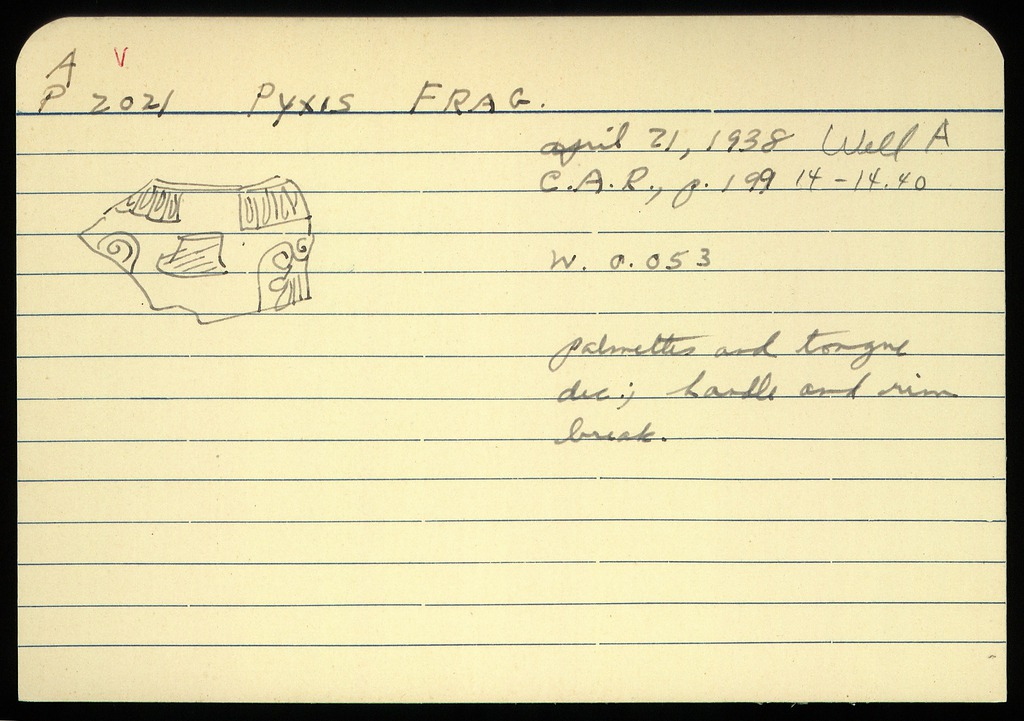 A V
P 2021 PYXIS FRAG.
april 21, 1938 Well A
C.A.R., p. 199 14-14.40
W. 0.053
palmettes and tongue
dec.; handle and rim
break.